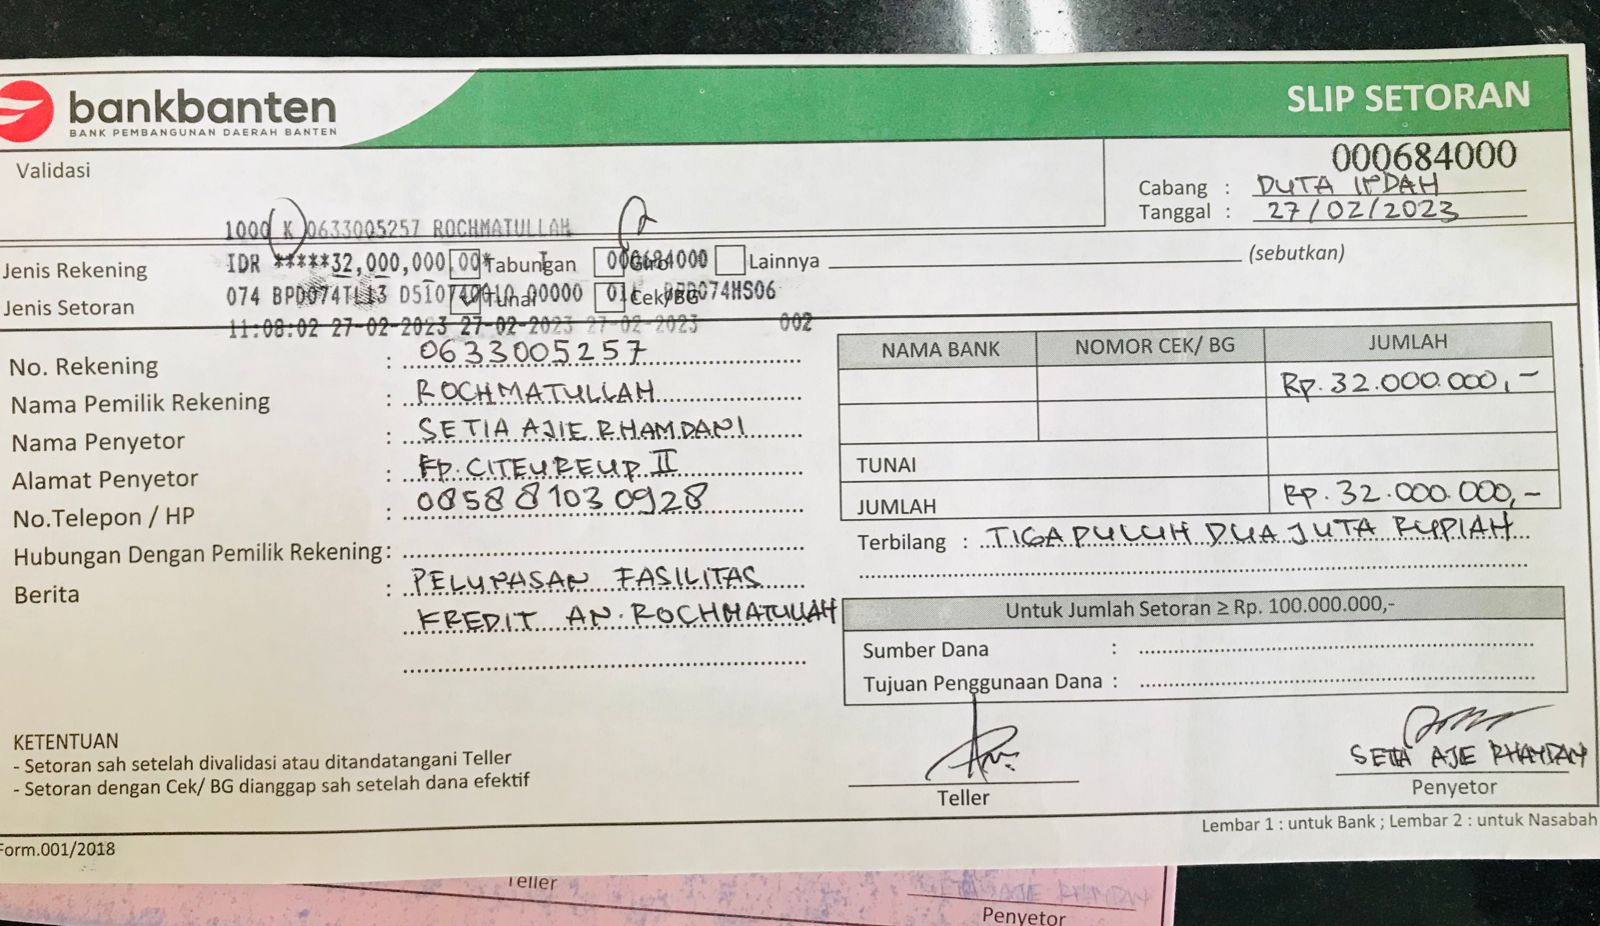 bankbanten
BANK PEMBANGUNAN DAERAH BANTEN
SLIP SETORAN
000684000
Validasi
Cabang : DUTA INDAH
Tanggal : 27/02/2023
1000 K 0633005257 ROCHMATULLAH
IDR *****32,000,000.00* 000684000
Jenis Rekening Tabungan Giro Lainnya (sebutkan)
074 BPD074TL13 00000 01 BPD074HS06
Jenis Setoran Tunai Cek/BG
11:08:02 27-02-2023 27-02-2023 27-02-2023 002
No. Rekening : 0633005257
Nama Pemilik Rekening : ROCHMATULLAH
Nama Penyetor : SETIA AJIE RHAMDANI
Alamat Penyetor : KP. CITEUREUP II
No.Telepon / HP : 085881030928
Hubungan Dengan Pemilik Rekening:
Berita : PELUNASAN FASILITAS
KREDIT AN. ROCHMATULLAH
NAMA BANK NOMOR CEK/ BG JUMLAH
Rp. 32.000.000,-
TUNAI
JUMLAH Rp. 32.000.000,-
Terbilang : TIGA PULUH DUA JUTA RUPIAH
Untuk Jumlah Setoran ≥ Rp. 100.000.000,-
Sumber Dana :
Tujuan Penggunaan Dana :
KETENTUAN
- Setoran sah setelah divalidasi atau ditandatangani Teller
- Setoran dengan Cek/ BG dianggap sah setelah dana efektif
Teller
SETIA AJIE RHAMDANI
Penyetor
Lembar 1 : untuk Bank ; Lembar 2 : untuk Nasabah
Form.001/2018
Teller
Penyetor